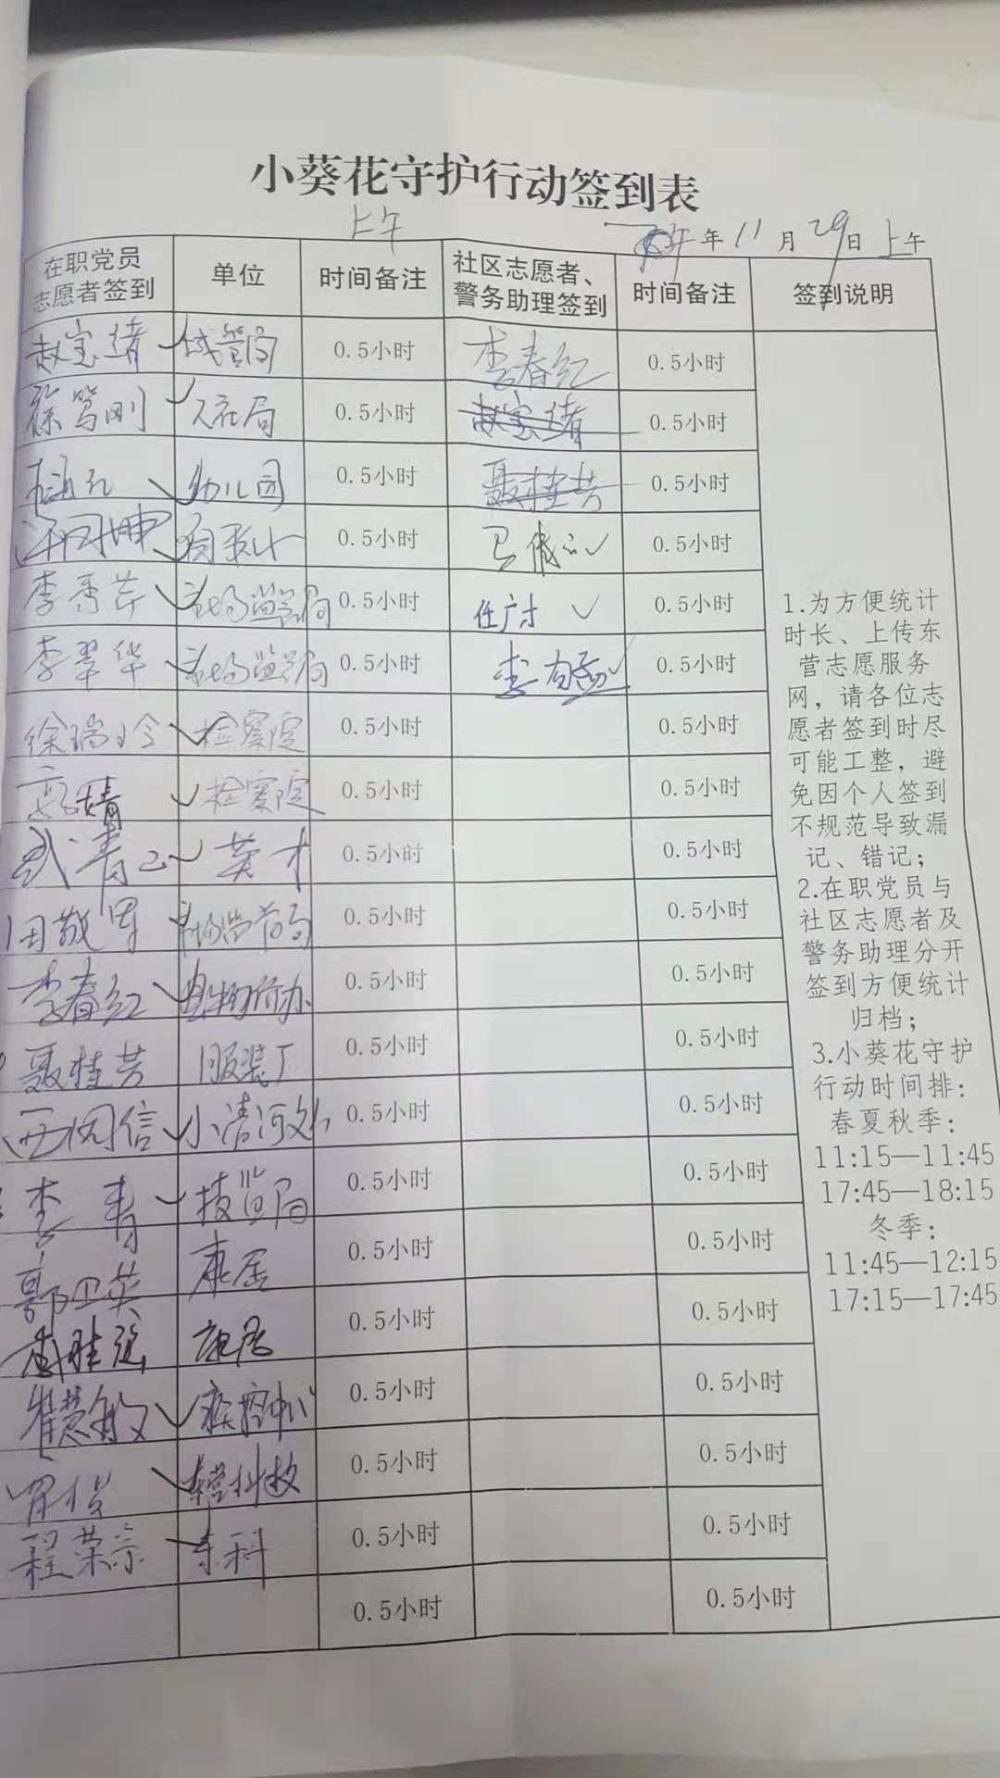 小葵花守护行动签到表
上午
年 11 月 29 日 上午
在职党员
志愿者签到
单位
时间备注
社区志愿者、
警务助理签到
时间备注
签到说明
赵宝绪 城管局 0.5小时 李春红 0.5小时
徐笃刚 人社局 0.5小时 赵宝绪 0.5小时
幼儿园 0.5小时 聂桂芸 0.5小时
0.5小时 0.5小时
李秀芹 市场监管局 0.5小时 任广才 0.5小时
李翠华 市场监管局 0.5小时 李 0.5小时
徐瑞玲 检察院 0.5小时 0.5小时
婧 检察院 0.5小时 0.5小时
武青 英才 0.5小时 0.5小时
田敬 市场监管局 0.5小时 0.5小时
李春红 物价办 0.5小时 0.5小时
聂桂芸 服装厂 0.5小时 0.5小时
信 小清河 0.5小时 0.5小时
李青 技监局 0.5小时 0.5小时
郭卫英 康居 0.5小时 0.5小时
胜 康居 0.5小时 0.5小时
崔慧敏 疾控中心 0.5小时 0.5小时
0.5小时 0.5小时
程荣宗 东科 0.5小时 0.5小时
0.5小时 0.5小时
1.为方便统计
时长、上传东
营志愿服务
网，请各位志
愿者签到时尽
可能工整，避
免因个人签到
不规范导致漏
记、错记；
2.在职党员与
社区志愿者及
警务助理分开
签到方便统计
归档；
3.小葵花守护
行动时间排：
春夏秋季：
11:15—11:45
17:45—18:15
冬季：
11:45—12:15
17:15—17:45